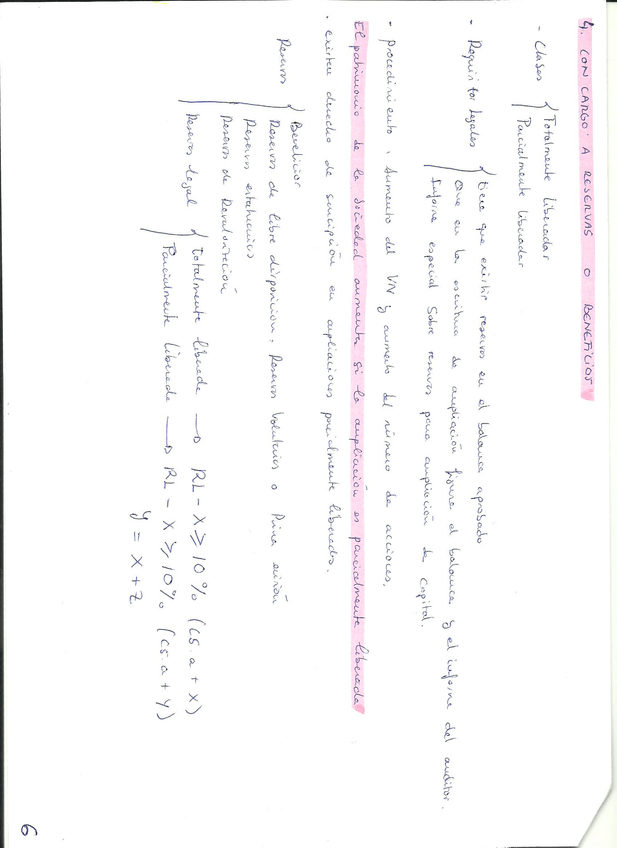 4. CON CARGO A RESERVAS O BENEFICIOS
- Clases { Totalmente liberadas
Parcialmente liberadas
- Requisitos legales { tiene que existir reservas en el balance aprobado
Que en la escritura de ampliación figure el balance y el informe del auditor.
Informe especial sobre reservas para ampliación de capital.
- Procedimiento: Aumento del VN y aumento del número de acciones.
El patrimonio de la sociedad aumenta si la ampliación es parcialmente liberada
. existen derecho de suscripción en ampliaciones parcialmente liberadas.
Reservas { Beneficios
Reservas de libre disposición, Reservas Voluntarias o Prima emisión
Reservas estatutarias
Reservas de Revalorización
Reserva legal { Totalmente liberada → RL - X ≥ 10% (CS.a + X)
Parcialmente liberada → RL - X ≥ 10% (CS.a + Y)
Y = X + Z
6